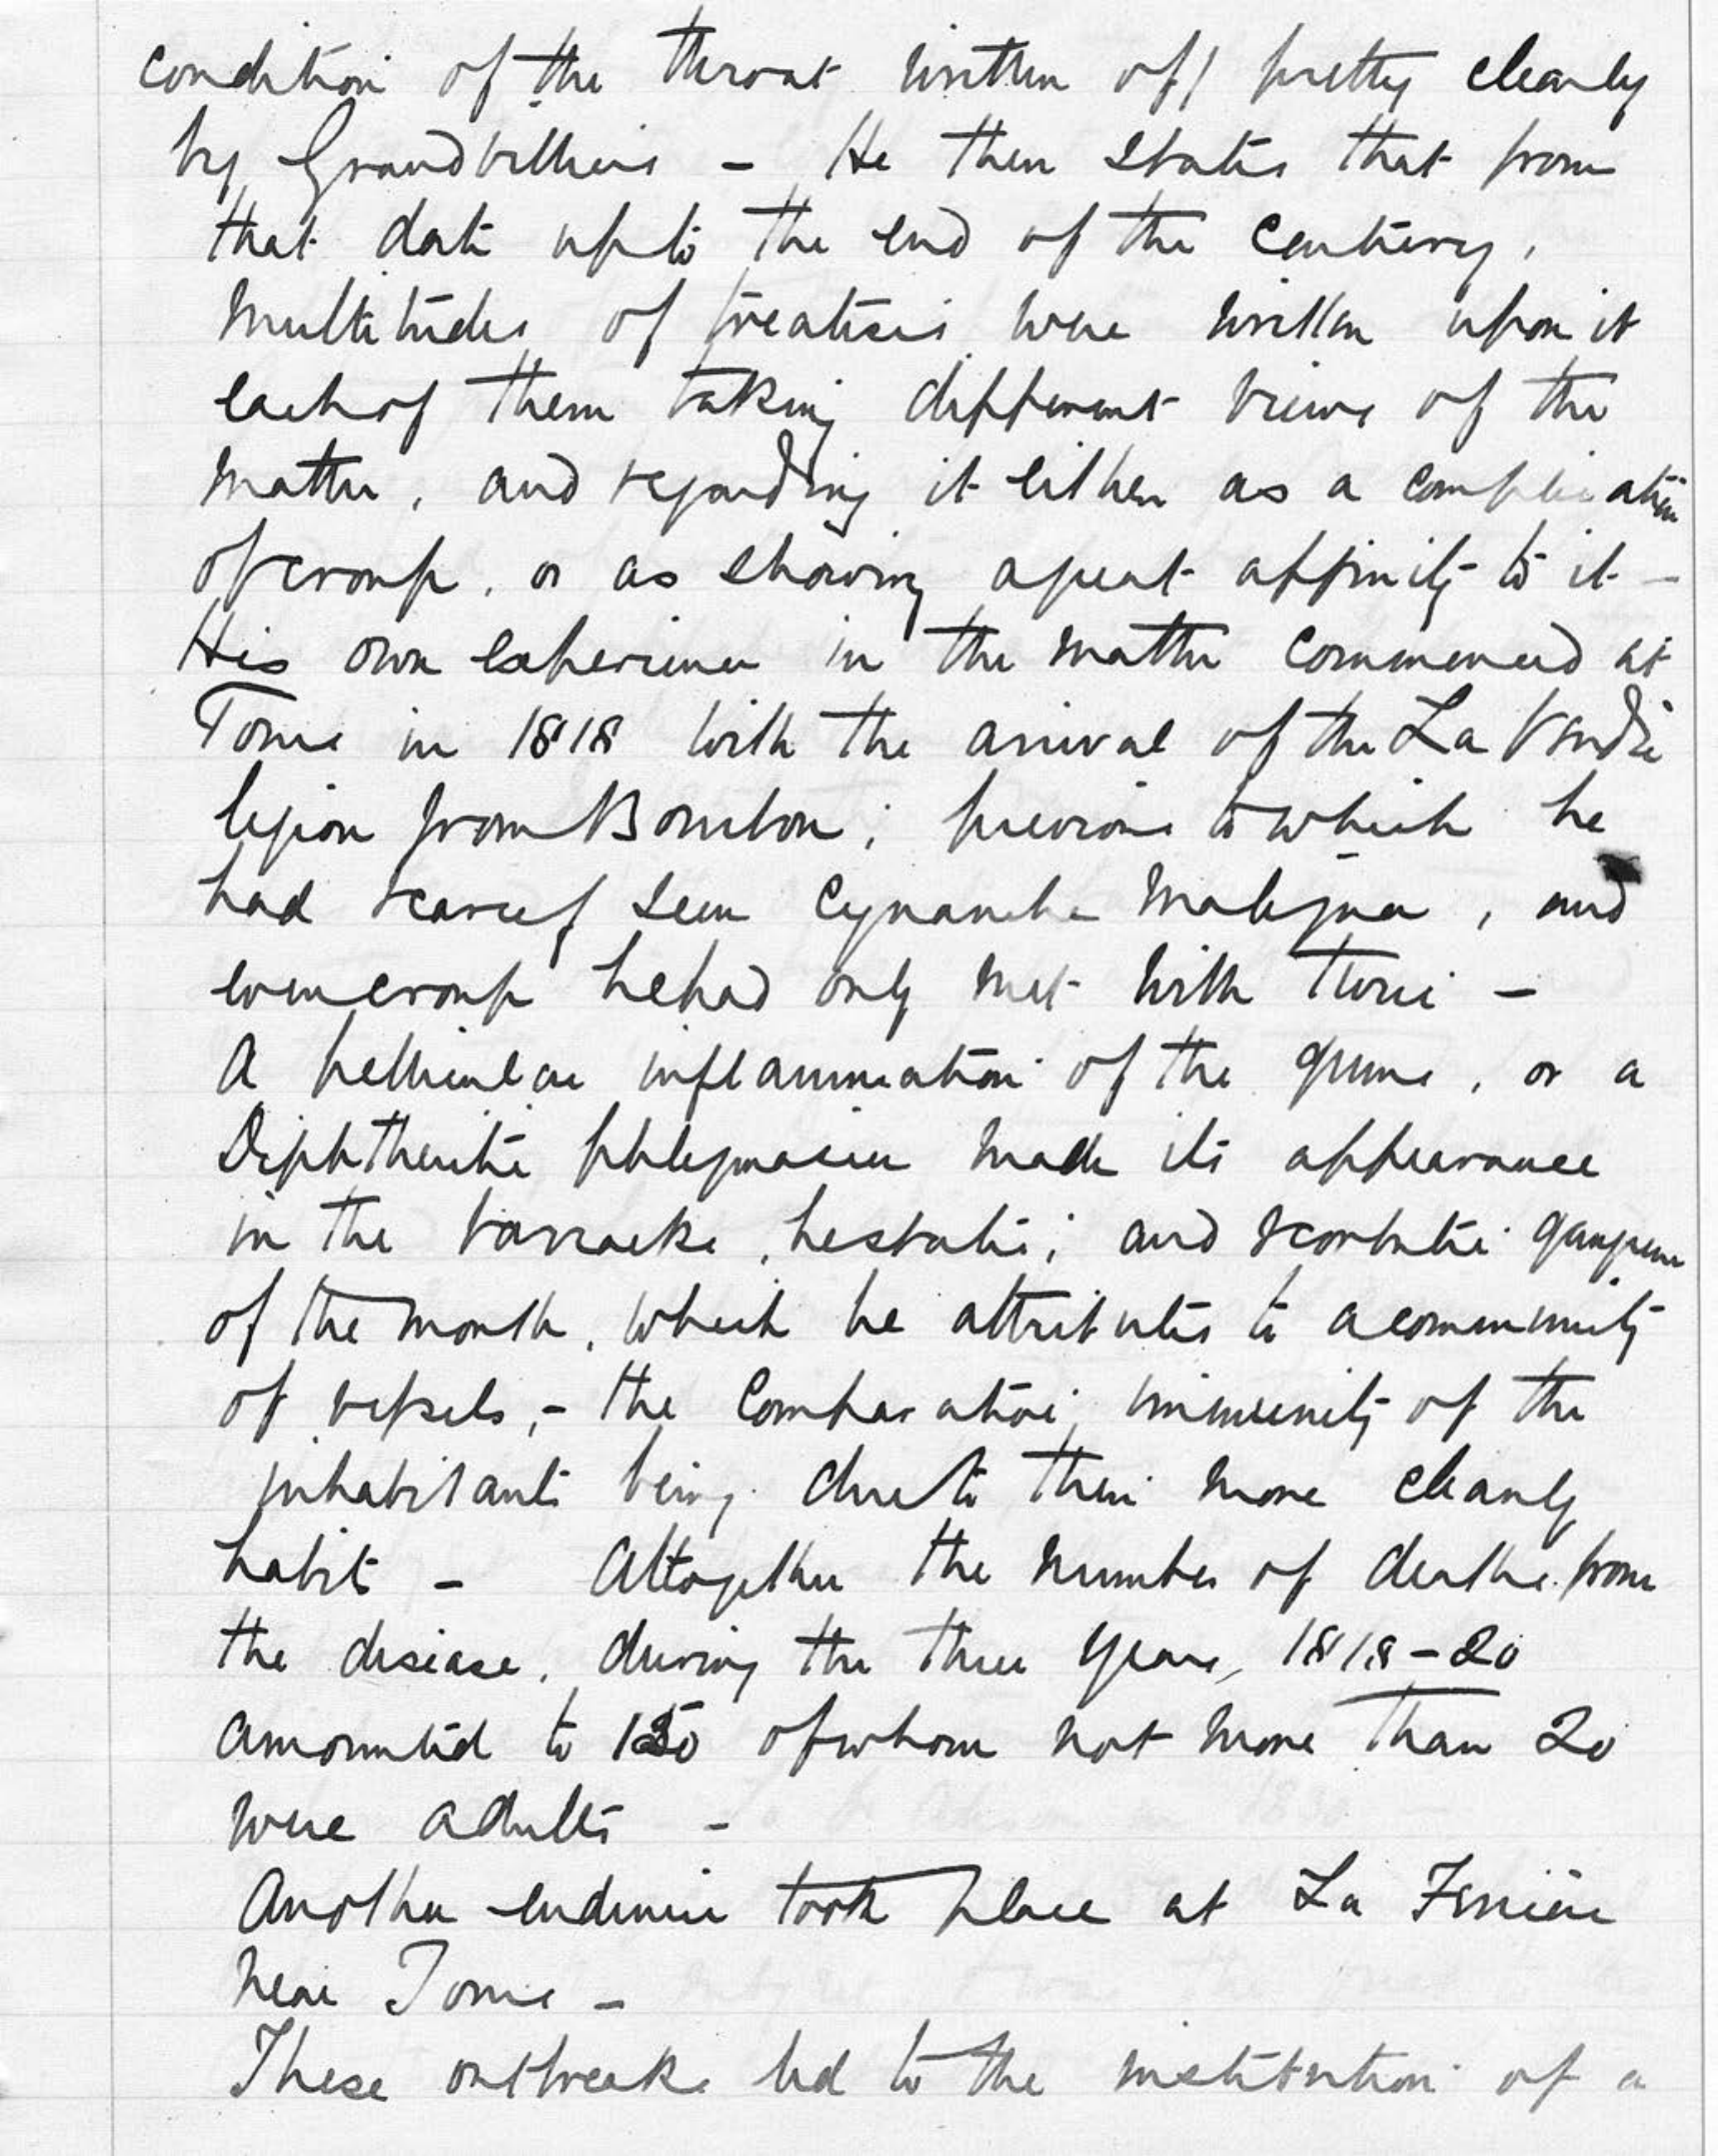 condition of the throat written of, pretty clearly
by Grandvilliers - He then states that from
that date up to the end of the century,
multitudes of treatises were written upon it
each of them taking different views of the
matter, and regarding it either as a complication
of croup, or as showing a great affinity to it -
His own experience in the matter commenced at
Tours in 1818 with the arrival of the La Vendée
legion from Bourbon; previous to which he
had scarcely seen Cynanche Maligna, and
even croup he had only met with twice -
A pellicular inflammation of the gums, or a
Diphtheritic phlegmasia made its appearance
in the barracks, and scorbutic gangrene
of the mouth, which he attributes to a community
of vessels, - the comparative immunity of the
inhabitants being due to their more cleanly
habits - Altogether the number of deaths from
the disease, during the three years, 1818-20
amounted to of whom not more than 20
were adults -
Another endemic took place at La Ferrière
near Tours -
These outbreaks led to the institution of a